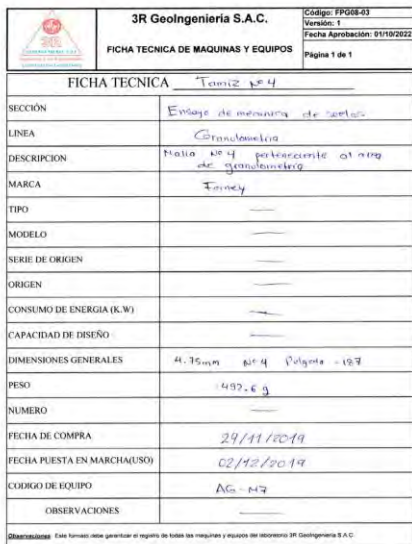 3R GeoIngenieria S.A.C.
FICHA TECNICA DE MAQUINAS Y EQUIPOS
Código: FPG08-03
Versión: 1
Fecha Aprobación: 01/10/2022
Página 1 de 1
FICHA TECNICA Tamiz Nº 4
SECCIÓN Ensayo de mecanica de suelos
LINEA Granulometria
DESCRIPCION Malla Nº 4 perteneciente al area
de granulometria
MARCA Forney
TIPO —
MODELO —
SERIE DE ORIGEN —
ORIGEN —
CONSUMO DE ENERGIA (K.W) —
CAPACIDAD DE DISEÑO —
DIMENSIONES GENERALES 4.75mm Nº 4 Pulgada .187
PESO 492.6 g
NUMERO —
FECHA DE COMPRA 29/11/2019
FECHA PUESTA EN MARCHA(USO) 02/12/2019
CODIGO DE EQUIPO AG-M7
OBSERVACIONES —
Observaciones: Este formato debe garantizar el registro de todas las maquinas y equipos del laboratorio 3R GeoIngenieria S.A.C